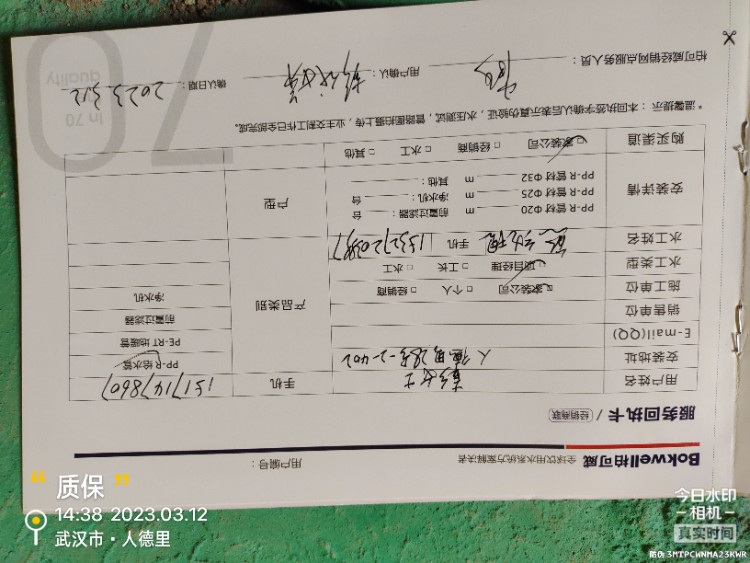 Bokwell柏可威
全球饮用水系统方案解决者
用户编号：
服务回执卡 / 经销商联
用户姓名
手机
安装地址
人德里28号-2-402
E-mail(QQ)
销售单位
施工单位 家装公司 □ 个人 □ 经销商
水工类型 项目经理 □ 工长 □ 水工
水工姓名
手机
产品类别
PP-R 给水管
PE-RT 地暖管
前置过滤器
净水机
安装详情
PP-R 管材 Φ20 m 前置过滤器： 台
PP-R 管材 Φ25 m 净水机： 台
PP-R 管材 Φ32 m 其他：
户型
购买渠道 家装公司 □ 经销商 □ 水工 □ 其他
* 温馨提示：本回执签字确认后表示真伪验证，水压测试，管路图拍摄上传，业主交割工作已全部完成。
柏可威经销网点服务人员：
用户确认：
确认日期： 2023.3.12
In 70
quality
70
质保
14:38 2023.03.12
武汉市·人德里
今日水印
相机
真实时间
防伪 3MTPCWNMA23KWR